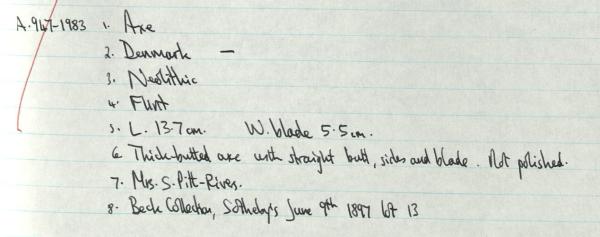 A.947-1983 1. Axe
2. Denmark —
3. Neolithic
4. Flint
5. L. 13.7cm. W. blade 5.5cm.
6. Thick-butted axe with straight butt, sides and blade. Not polished.
7. Mrs. S. Pitt-Rivers.
8. Beck Collection, Sotheby's June 9th 1897 lot 13